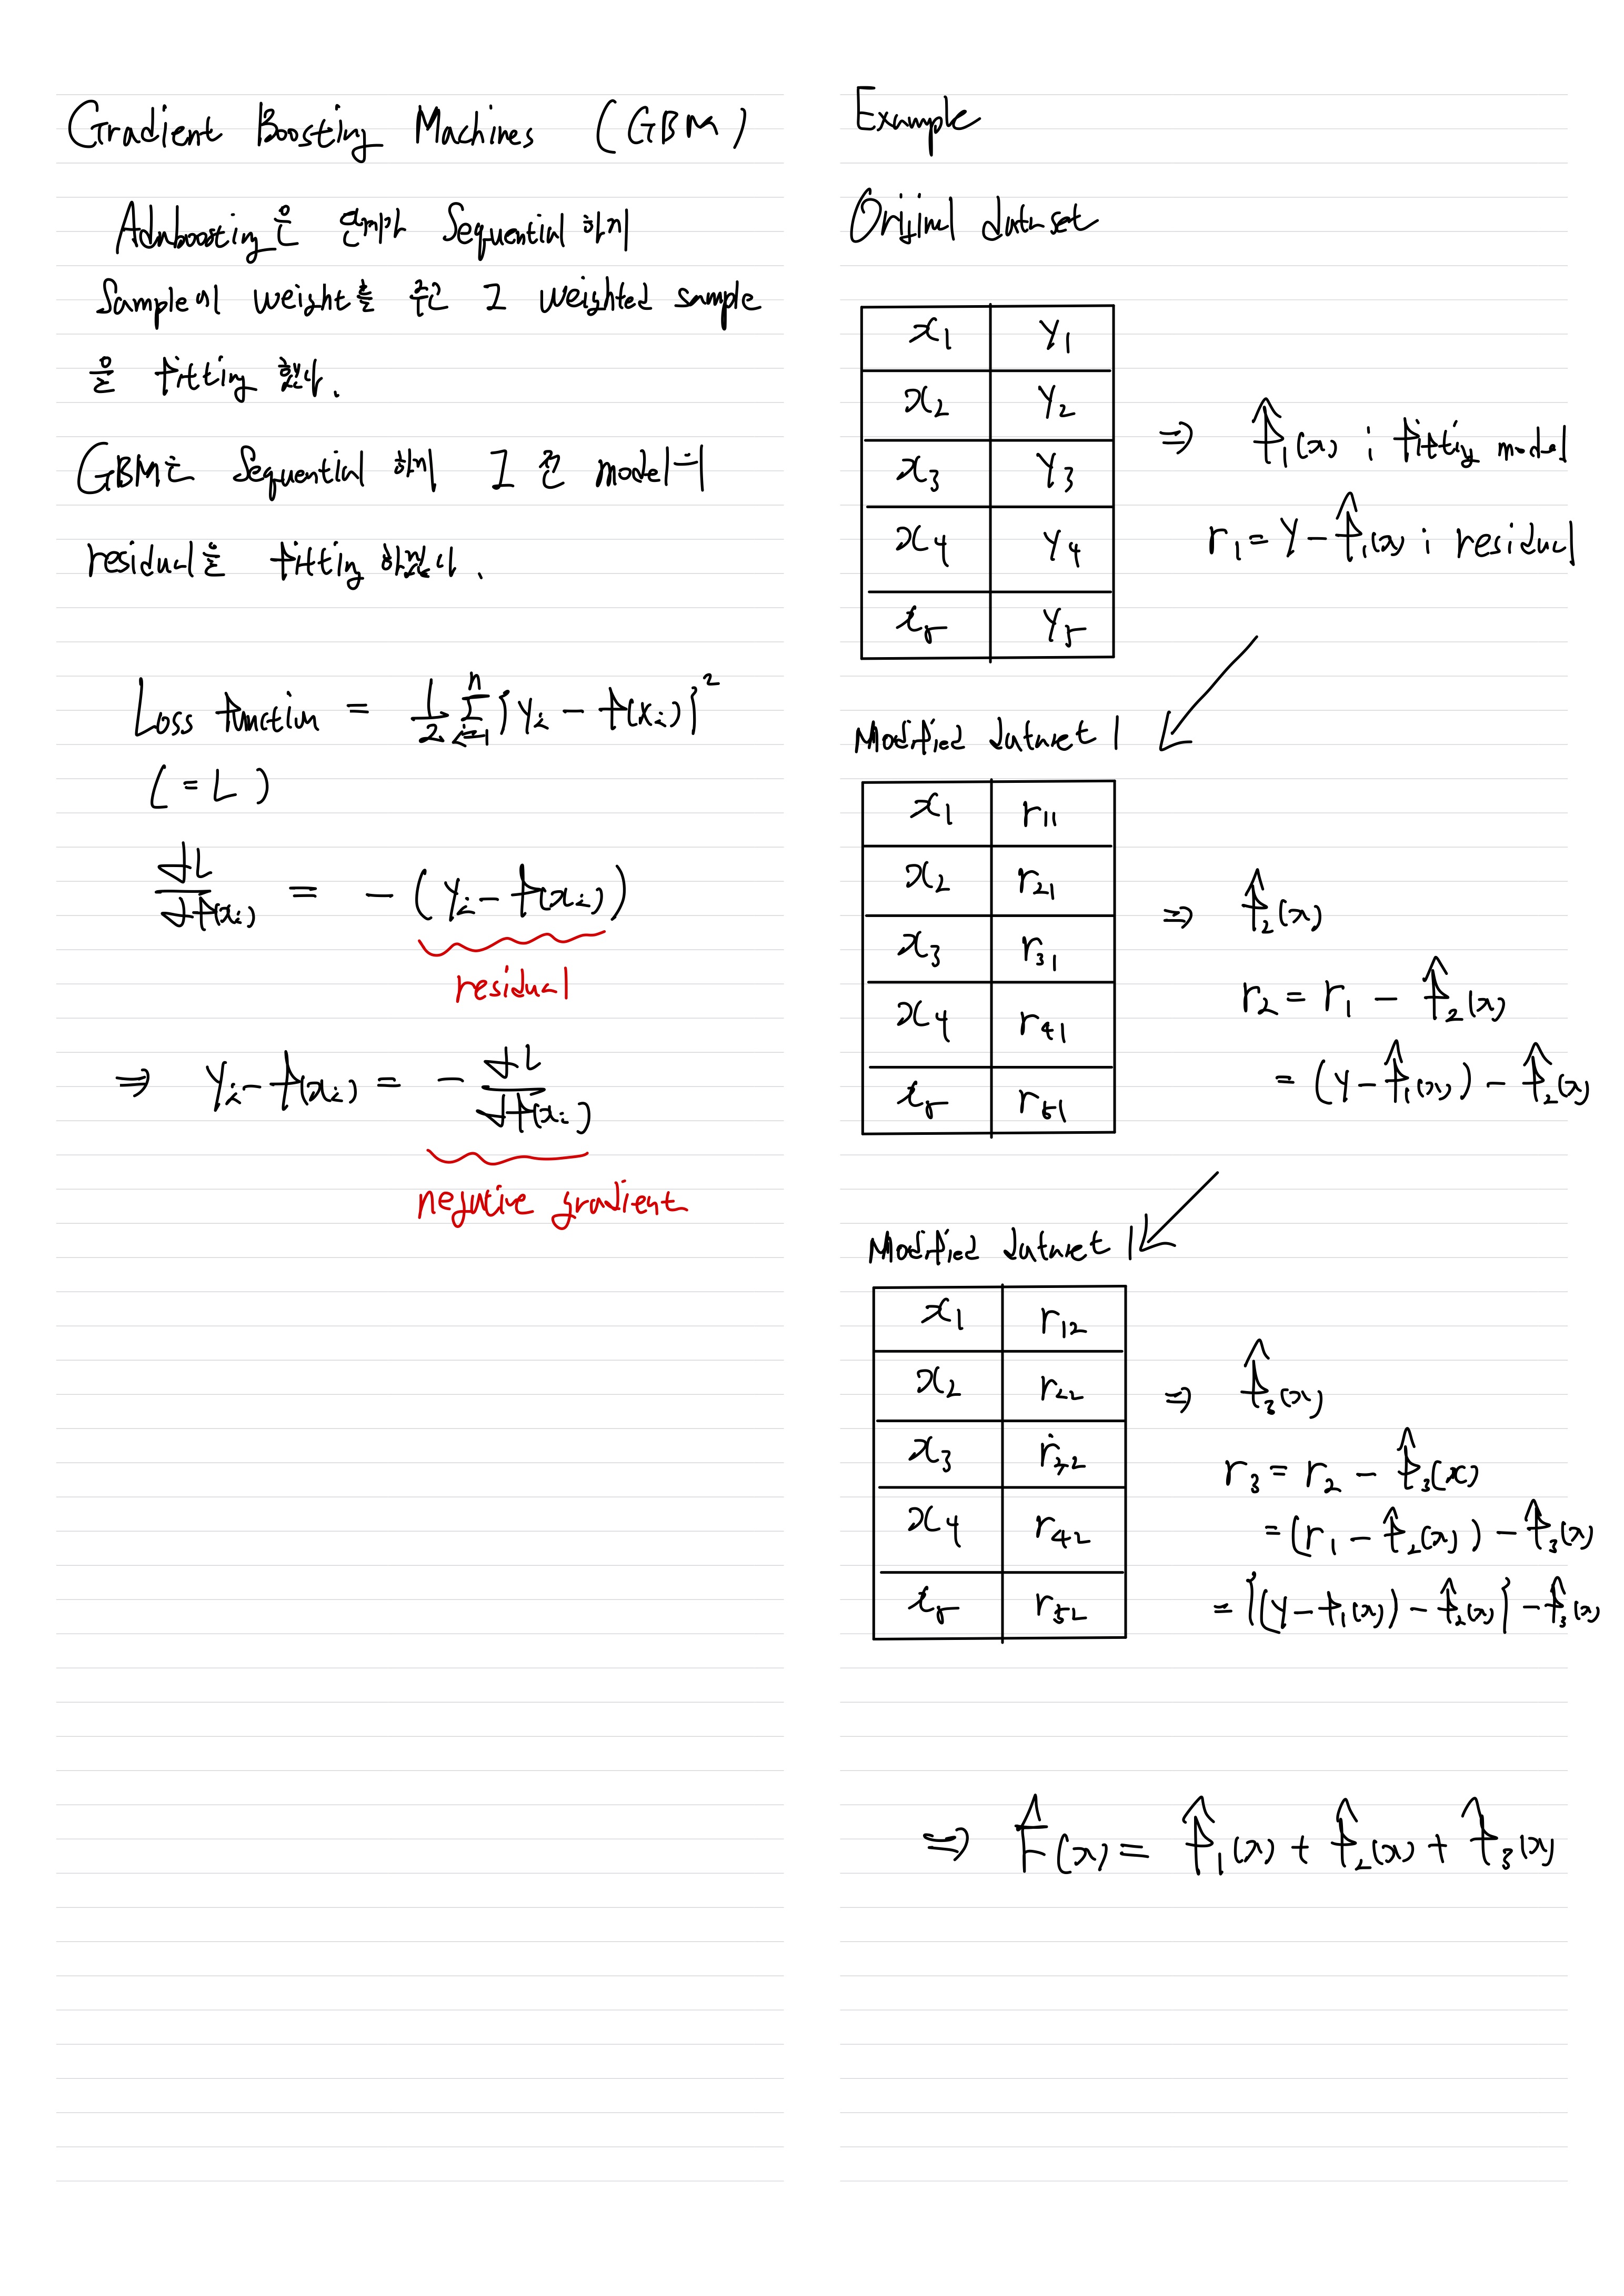 Gradient Boosting Machines (GBM)
Adaboosting은 Sequential 하게
Sample에 weight를 주고 그 weighted sample
을 fitting 했다.
GBM은 Sequential 하게 그 전 model의
residual을 fitting 하였다.
Loss function = 1/2 Σ_{i=1}^{n} {y_i - f(x_i)}²
( = L )
dL/df(x_i) = - (y_i - f(x_i))
residual
⇒ y_i - f(x_i) = - dL/df(x_i)
negative gradient
Example
Original dataset
x_1 y_1
x_2 y_2
x_3 y_3
x_4 y_4
x_5 y_5
⇒ f̂_1(x) ; fitting model
r_1 = y - f̂_1(x) ; residual
Modified dataset 1
x_1 r_11
x_2 r_21
x_3 r_31
x_4 r_41
x_5 r_51
⇒ f̂_2(x)
r_2 = r_1 - f̂_2(x)
= (y - f̂_1(x)) - f̂_2(x)
Modified dataset 1
x_1 r_12
x_2 r_22
x_3 r_32
x_4 r_42
x_5 r_52
⇒ f̂_3(x)
r_3 = r_2 - f̂_3(x)
= (r_1 - f̂_2(x)) - f̂_3(x)
= {(y - f_1(x)) - f̂_2(x)} - f̂_3(x)
⇒ F̂(x) = f̂_1(x) + f̂_2(x) + f̂_3(x)